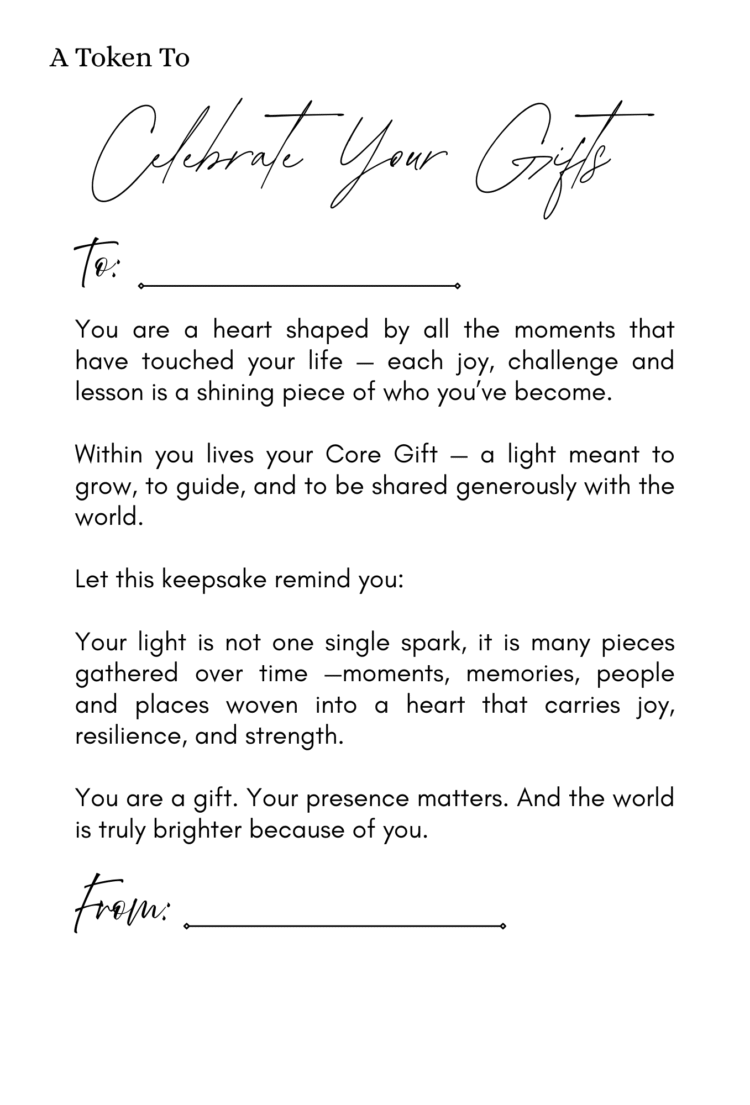 A Token To
Celebrate Your Gifts
To:
You are a heart shaped by all the moments that
have touched your life – each joy, challenge and
lesson is a shining piece of who you've become.
Within you lives your Core Gift – a light meant to
grow, to guide, and to be shared generously with the
world.
Let this keepsake remind you:
Your light is not one single spark, it is many pieces
gathered over time –moments, memories, people
and places woven into a heart that carries joy,
resilience, and strength.
You are a gift. Your presence matters. And the world
is truly brighter because of you.
From: